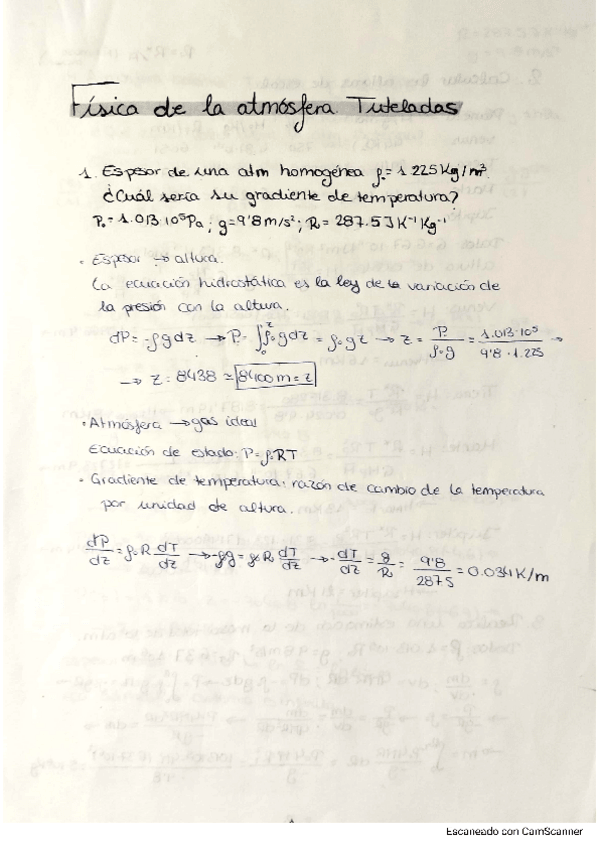 Física de la atmósfera Tuteladas
1. Espesor de una atm homogénea ρ₀=1.225Kg/m³.
¿Cuál sería su gradiente de temperatura?
P₀=1.013·10⁵Pa; g=9'8m/s²; R=287.5JK⁻¹Kg⁻¹
· Espesor → altura.
La ecuación hidrostática es la ley de la variación de
la presión con la altura.
dP=-ρgdz → P=∫₀ᶻρ₀gdz = ρ₀gz → z = P/ρ₀g = 1.013·10⁵/9'8·1.225 →
→ z = 8438 ≃ 8400m = z
· Atmósfera → gas ideal
Ecuación de estado: P=ρRT
· Gradiente de temperatura: razón de cambio de la temperatura
por unidad de altura.
dP/dz = ρ₀R dT/dz → -ρg = ρR dT/dz → -dT/dz = g/R = 9'8/287.5 = 0.034K/m
Escaneado con CamScanner